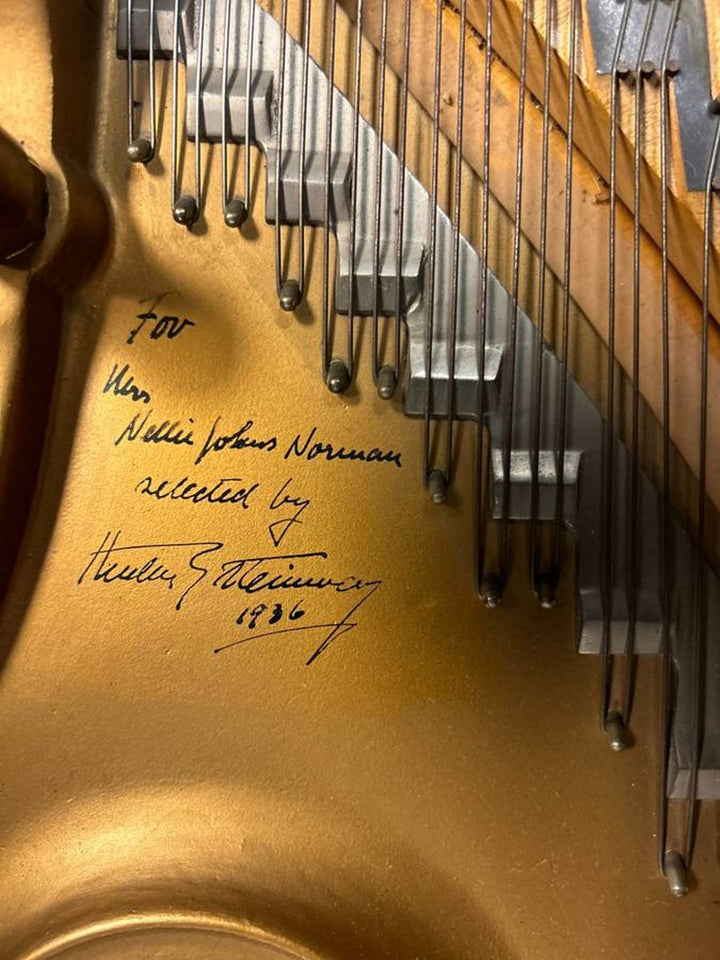 For
Mrs
Nellie Johns Norman
selected by
Theodore E Steinway
1936